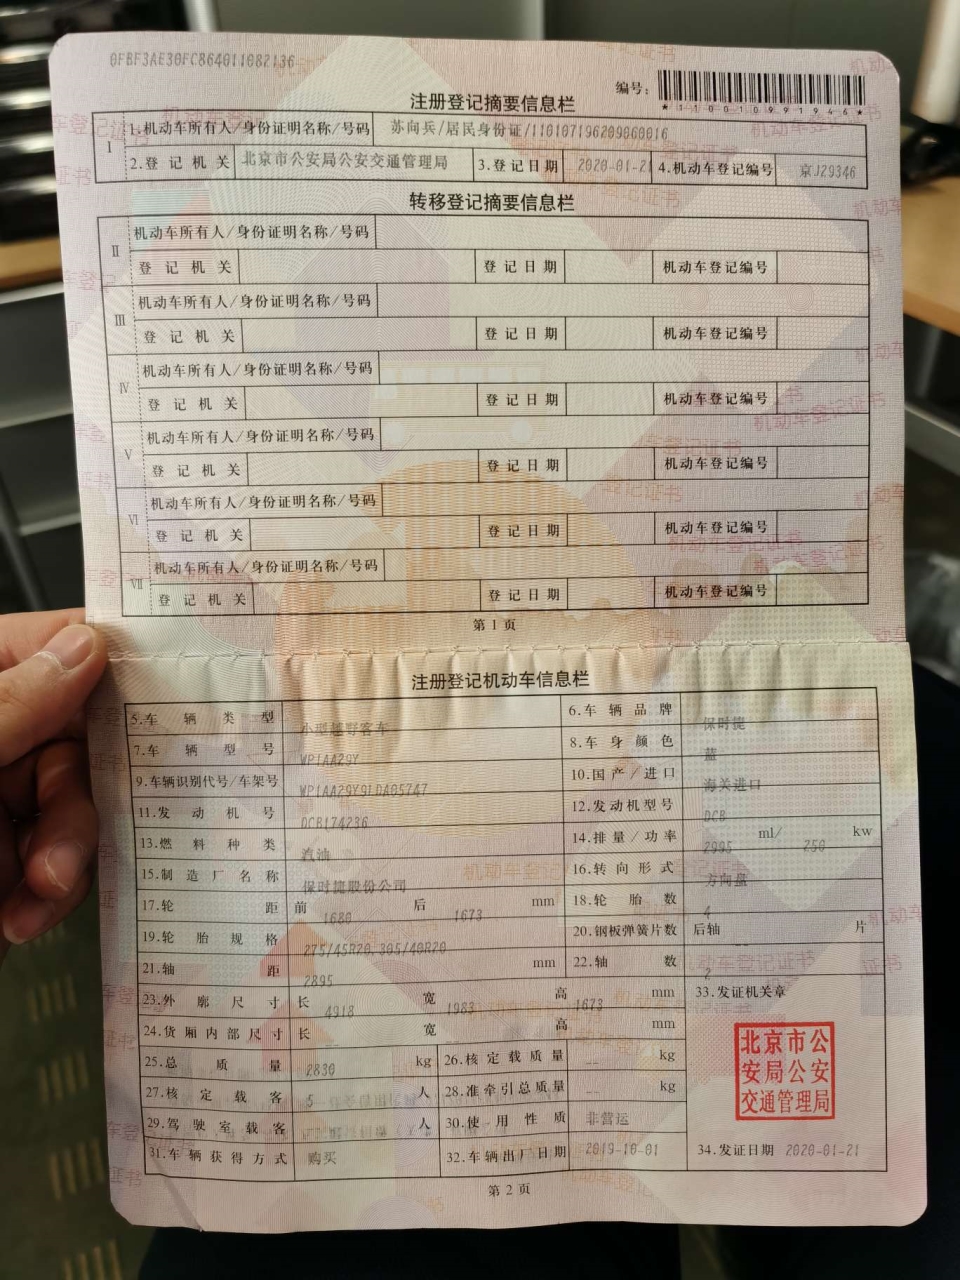 0FBF3AE30FCB64011082136
编号:
*110010991946*
注册登记摘要信息栏
I 1.机动车所有人/身份证明名称/号码 苏向兵/居民身份证/110107196209060016
2.登记机关 北京市公安局公安交通管理局 3.登记日期 2020-01-21 4.机动车登记编号 京J29346
转移登记摘要信息栏
II 机动车所有人/身份证明名称/号码
登记机关 登记日期 机动车登记编号
III 机动车所有人/身份证明名称/号码
登记机关 登记日期 机动车登记编号
IV 机动车所有人/身份证明名称/号码
登记机关 登记日期 机动车登记编号
V 机动车所有人/身份证明名称/号码
登记机关 登记日期 机动车登记编号
VI 机动车所有人/身份证明名称/号码
登记机关 登记日期 机动车登记编号
VII 机动车所有人/身份证明名称/号码
登记机关 登记日期 机动车登记编号
第1页
注册登记机动车信息栏
5.车辆类型 小型越野客车 6.车辆品牌 保时捷
7.车辆型号 WP1AA29Y 8.车身颜色 蓝
9.车辆识别代号/车架号 WP1AA29Y9LDA05747 10.国产/进口 海关进口
11.发动机号 DCB174236 12.发动机型号 DCB
13.燃料种类 汽油 14.排量/功率 2995 ml/ 250 kw
15.制造厂名称 保时捷股份公司 16.转向形式 方向盘
17.轮距 前 1680 后 1673 mm 18.轮胎数 4
19.轮胎规格 275/45R20,305/40R20 20.钢板弹簧片数 后轴 -- 片
21.轴距 2895 mm 22.轴数 2
23.外廓尺寸 长 4918 宽 1983 高 1673 mm 33.发证机关章
24.货厢内部尺寸 长 宽 高 mm
25.总质量 2830 kg 26.核定载质量 -- kg
27.核定载客 5 人 28.准牵引总质量 -- kg
29.驾驶室载客 人 30.使用性质 非营运
31.车辆获得方式 购买 32.车辆出厂日期 2019-10-01 34.发证日期 2020-01-21
北京市公
安局公安
交通管理局
第2页